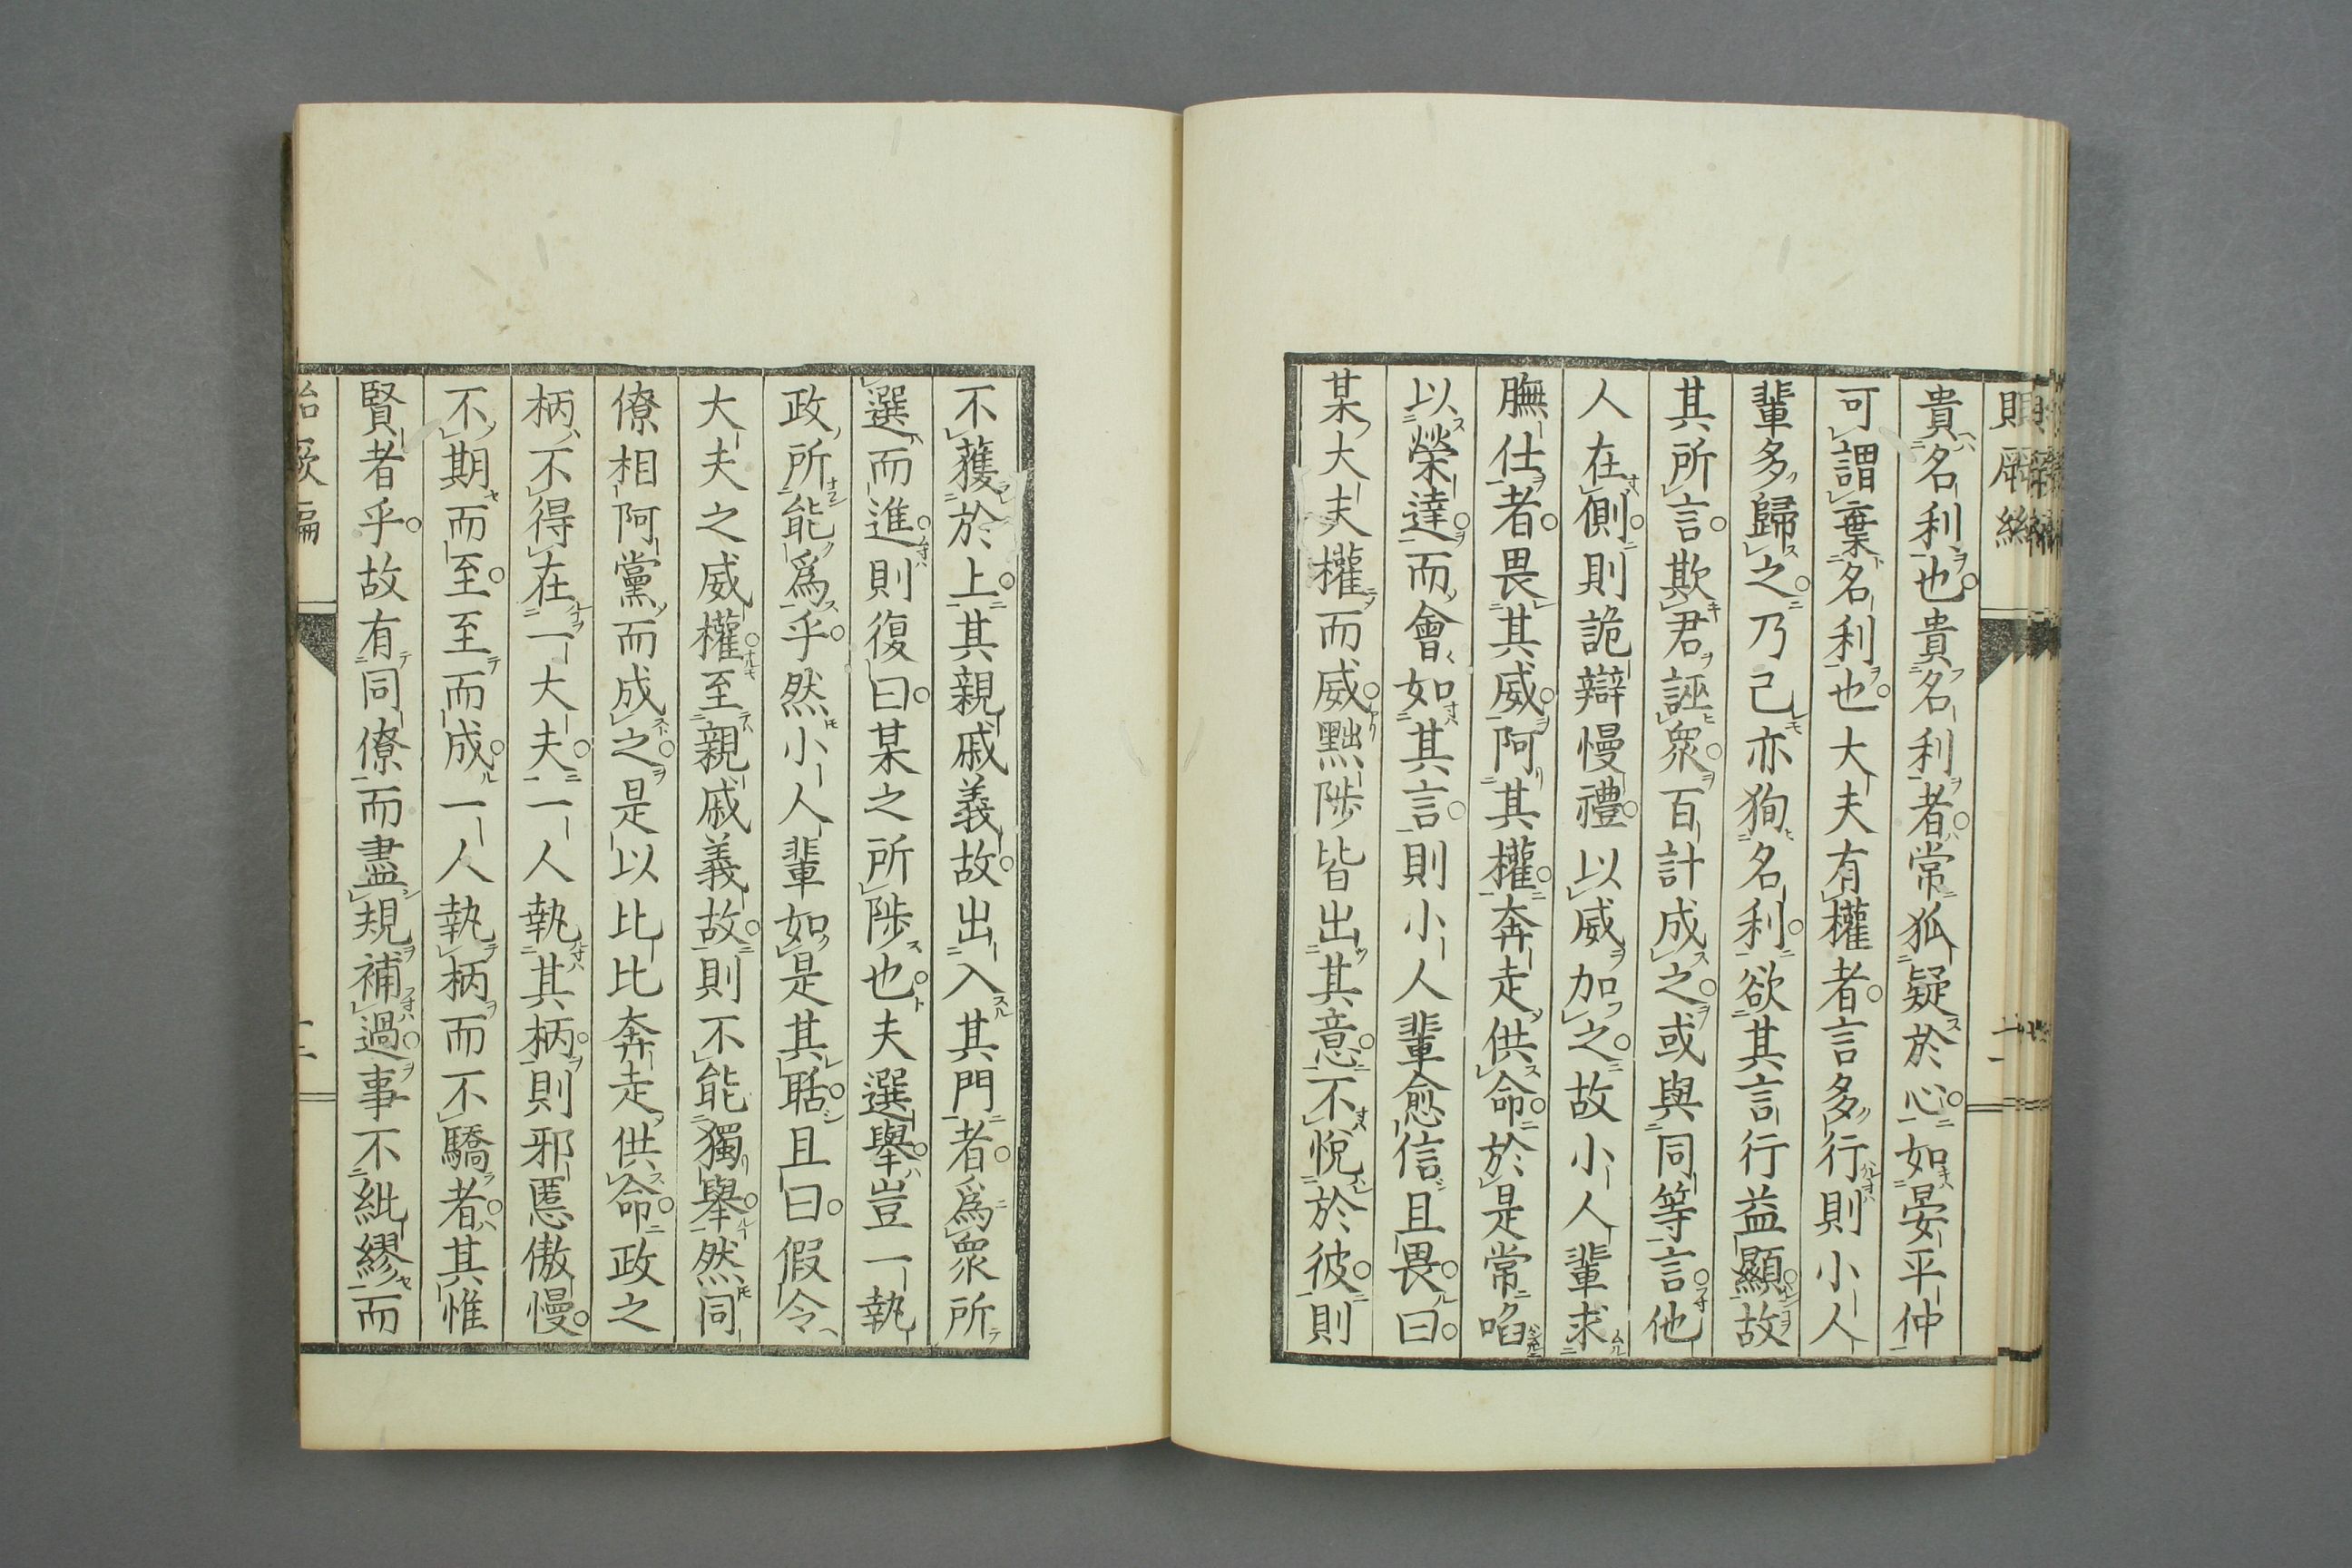 貴名利也貴名利者常狐疑於心如晏平仲
可謂棄名利也大夫有權者言多行則小人
輩多歸之乃己亦狥名利欲其言行益顯故
其所言欺君誣衆百計成之或與同等言他
人在側則詭辯慢禮以威加之故小人輩求
膴仕者畏其威阿其權奔走供命於是常啗
以榮達而會如其言則小人輩愈信且畏曰
某大夫權而威黜陟皆出其意不悅於彼則
不獲於上其親戚義故出入其門者爲衆所
選而進則復曰某之所陟也夫選擧豈一執
政所能爲乎然小人輩如是其聒且曰假令
大夫之威權至親戚義故則不能獨擧然同
僚相阿黨而成之是以比比奔走供命政之
柄不得在一大夫一人執其柄則邪慝傲慢
不期而至至而成一人執柄而不驕者其惟
賢者乎故有同僚而盡規補過事不紕繆而